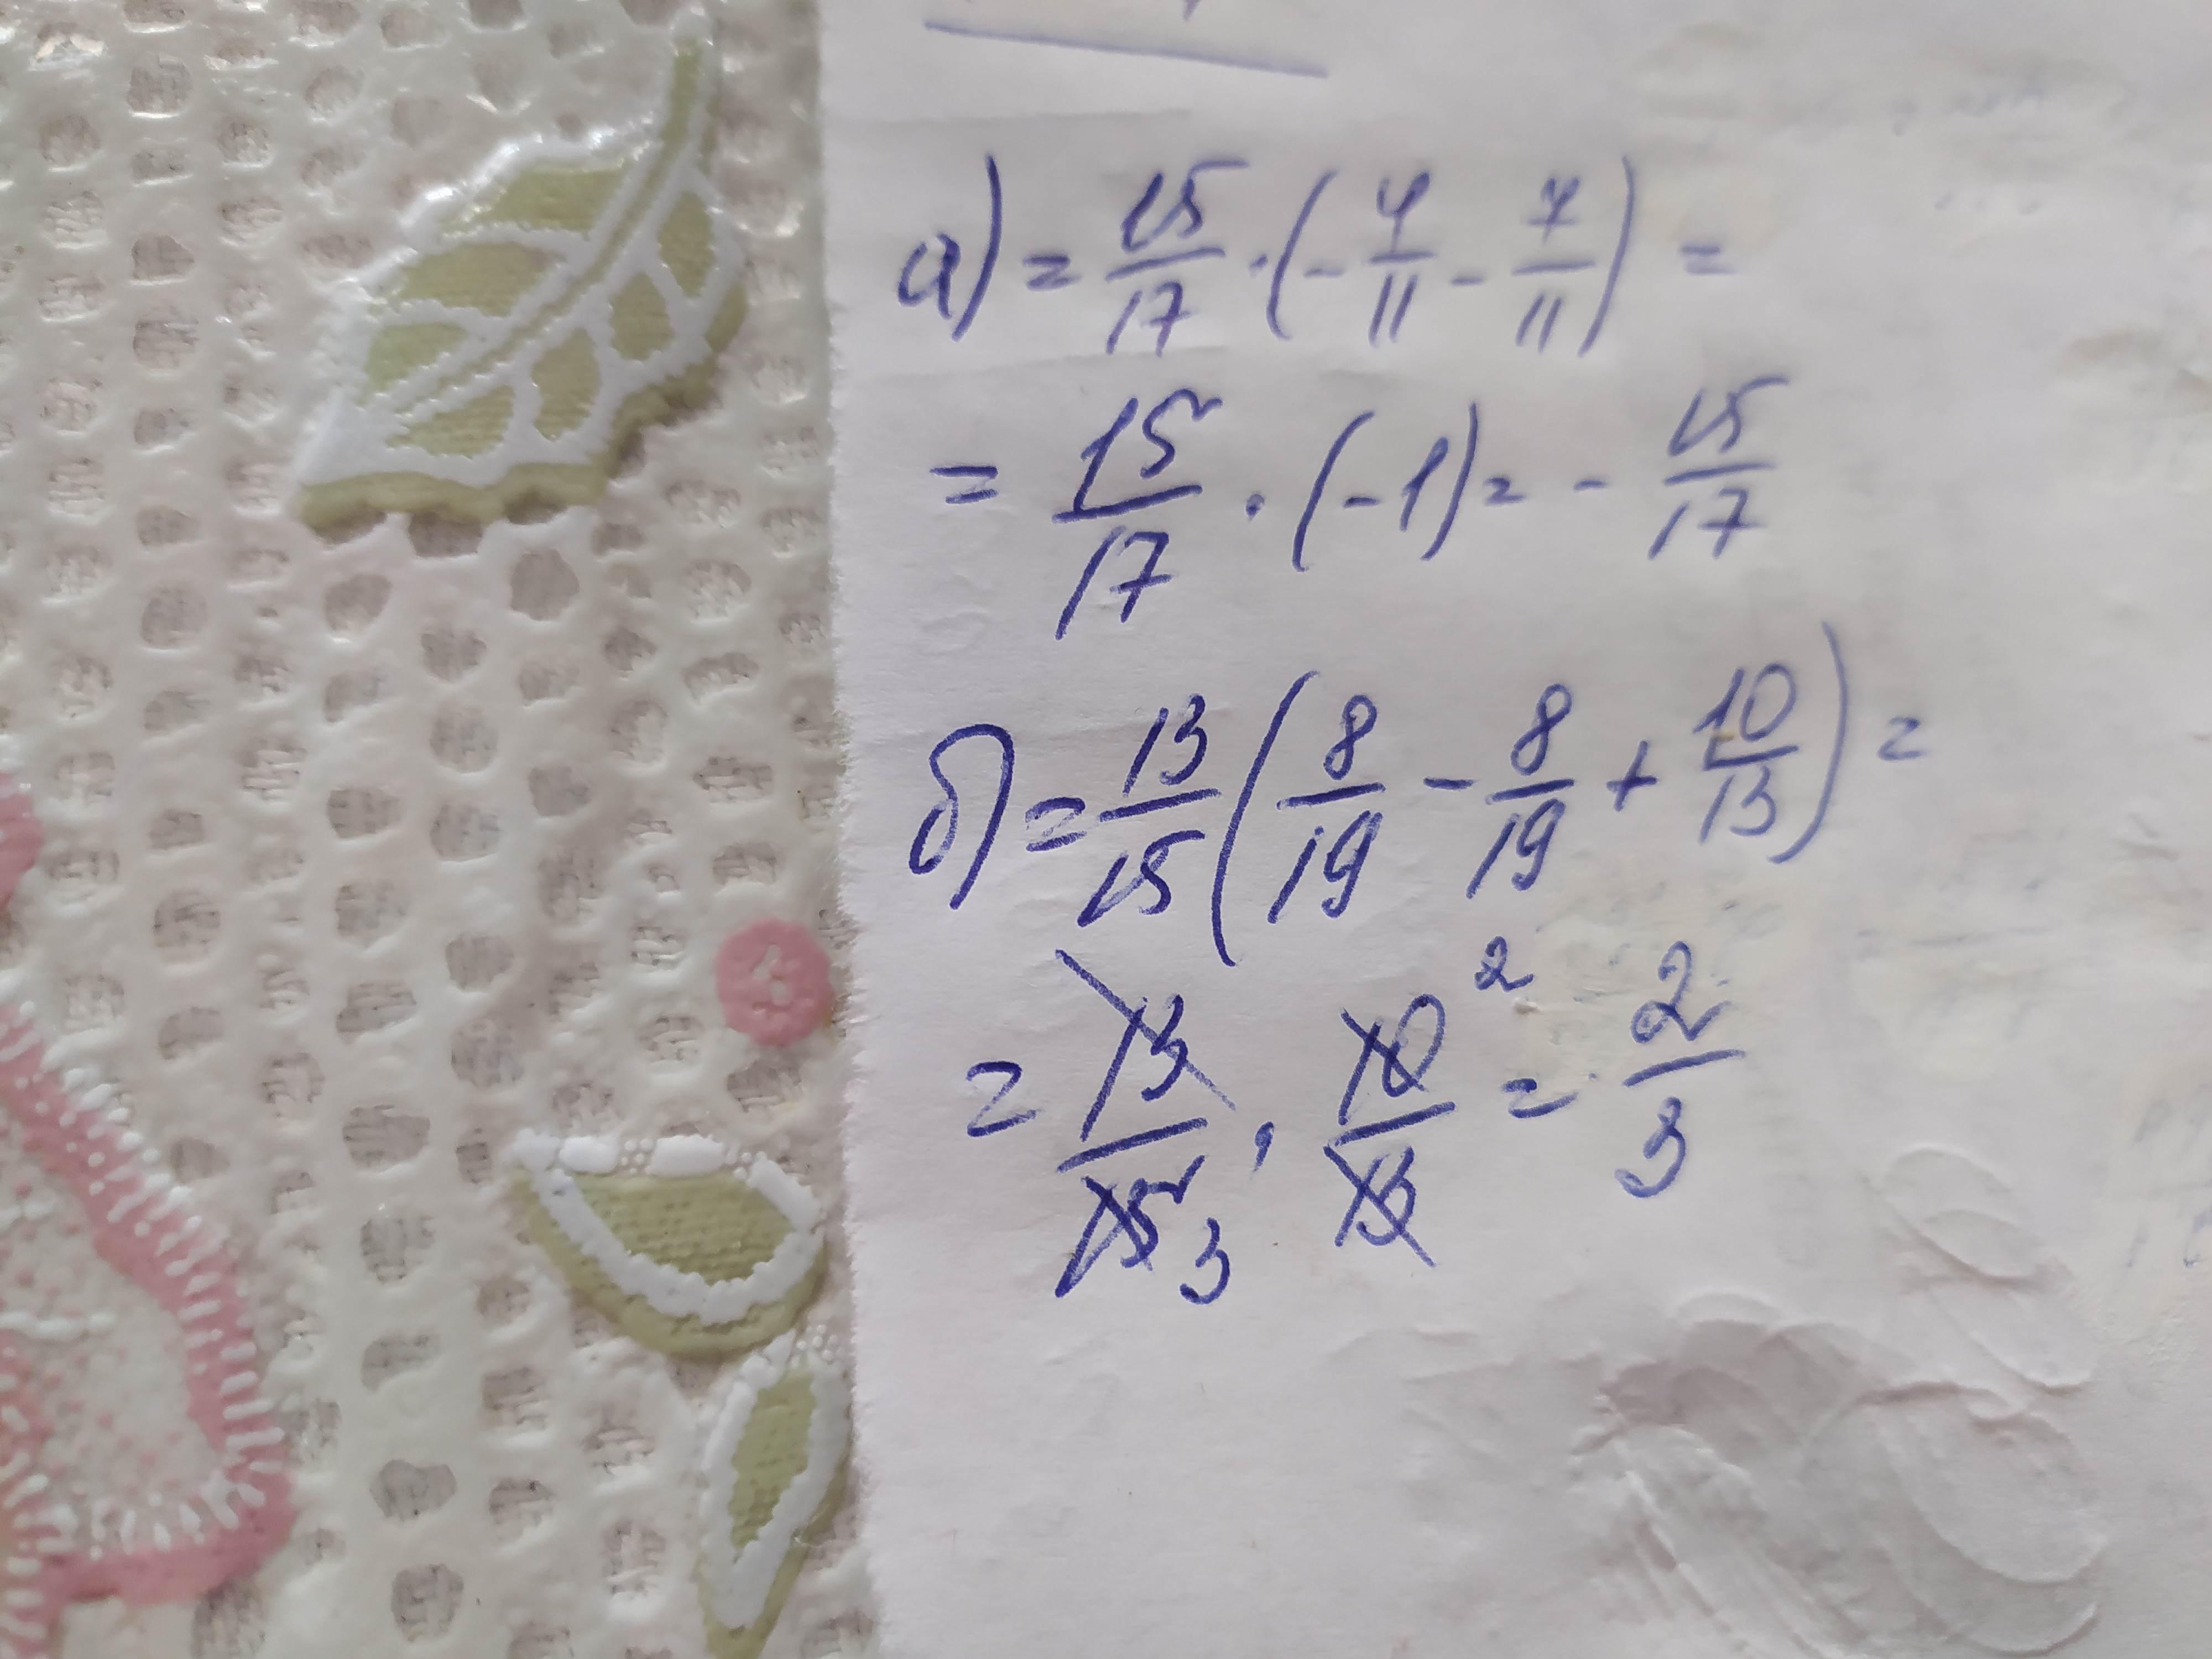 а) = 15/17 · (- 4/11 - 7/11) =
= 15/17 · (-1) = - 15/17
б) = 13/15 (8/19 - 8/19 + 10/13) =
= 13/15 3 · 10/13 2 = 2/3